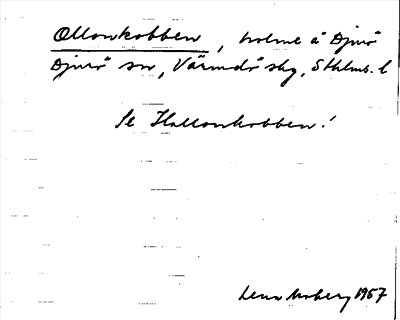 Ollonkobben, holme å Djurö
Djurö sn, Värmdö skg, Sthlms. l
Se Hallonkobben!
Lena Moberg 1957